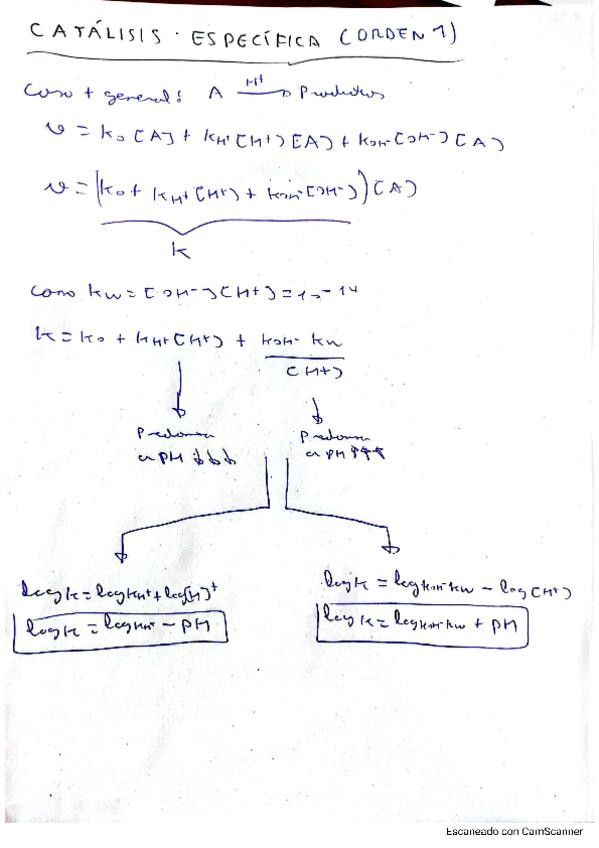 CATÁLISIS ESPECÍFICA (ORDEN 1)
Caso + general: A —H+→ Productos
v = k₀[A] + kH+[H+][A] + kOH-[OH-][A]
v = (k₀ + kH+[H+] + kOH-[OH-])[A]
k
Como kw = [OH-][H+] = 10-14
k = k₀ + kH+[H+] + kOH- kw
[H+]
Predomina
a pH ↓↓↓
Predomina
a pH ↑↑↑
log k = log kH+ + log[H]+
log k = log kH+ - pH
log k = log kOH- kw - log[H+]
log k = log kOH- kw + pH
Escaneado con CamScanner